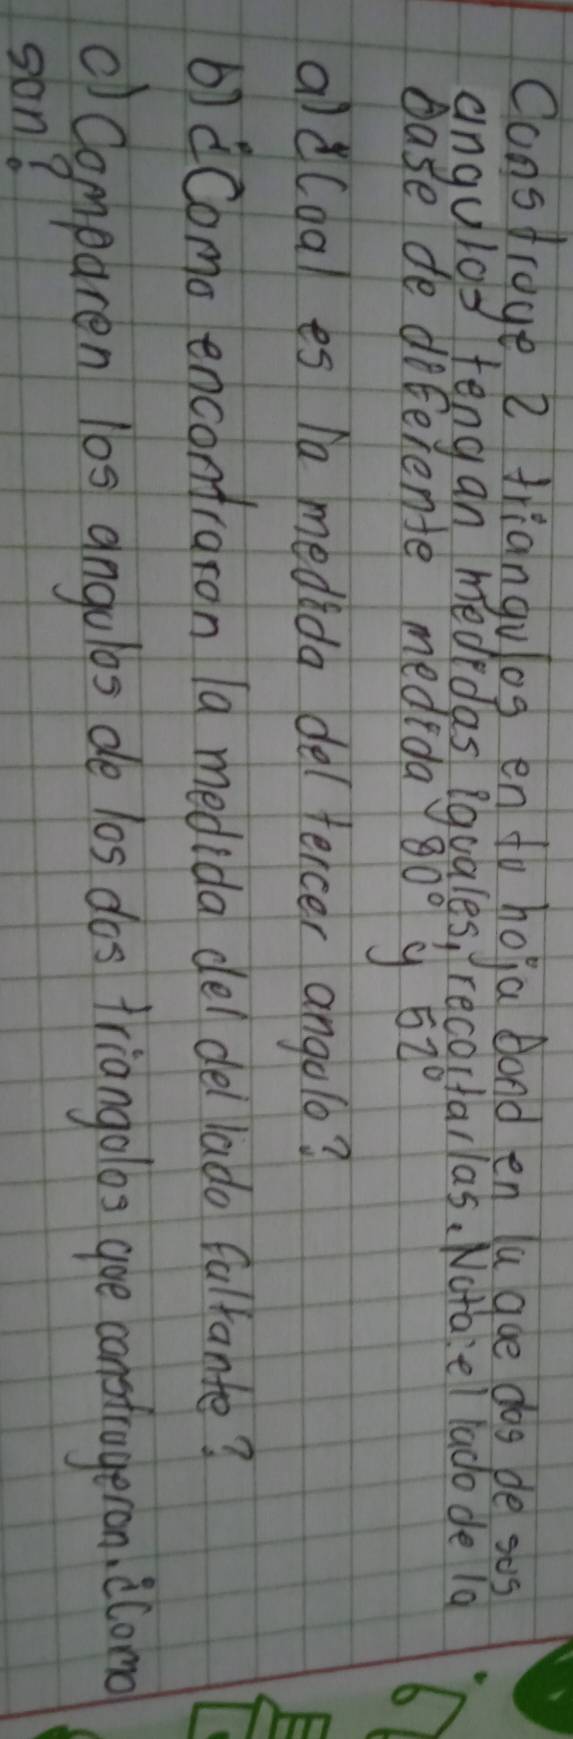 Construye 2 triangulos en tu hoja bond en la que dos de sus
angulos tengan medidas iguales, recortarlas. Nota: el lado de la
base de diferente medida 80° y 52°
a) ¿Coal es la medida del tercer angulo?
b) ¿Como encontraron la medida del del lado faltante?
c) Comparen los angulos de los dos triangulos que construyeron. ¿Como
son?